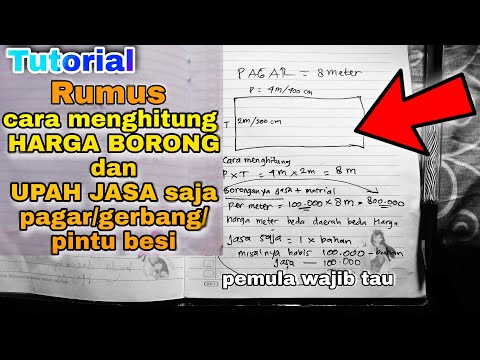 Tutorial
Rumus
cara menghitung
HARGA BORONG
dan
UPAH JASA saja
pagar/gerbang/
pintu besi
PAGAR = 8 meter
P = 4m/400 cm
T
2m/200cm
Cara menghitung
P x T = 4m x 2m = 8 m
Borongannya Jasa + matrial
per meter = 100.000 x 8m = 800.000
harga meter beda daerah beda Harga
Jasa saja = 1 x bahan
misalnya habis 100.000 - bahan
Jasa — 100.000
pemula wajib tau